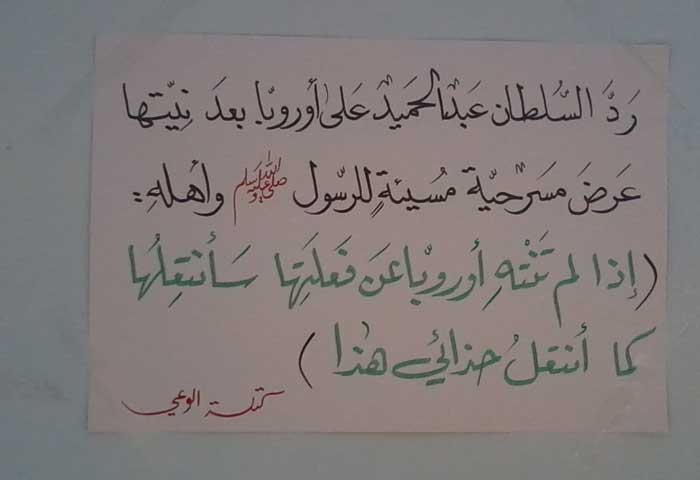 رَدَّ السُّلطان عبدالحميد عَلىٰ أوروبّا بعدَ نِيّتها
عَرضَ مَسَرحيّة مُسيئةٍ للرسّول ﷺ وأهلهِ :
(إذا لم تَنْتهِ أوروبّا عَن فَعلَتِها سَأنتعِلُها
كما أنتعلُ حذائي هٰذا )
كتلة الوعي